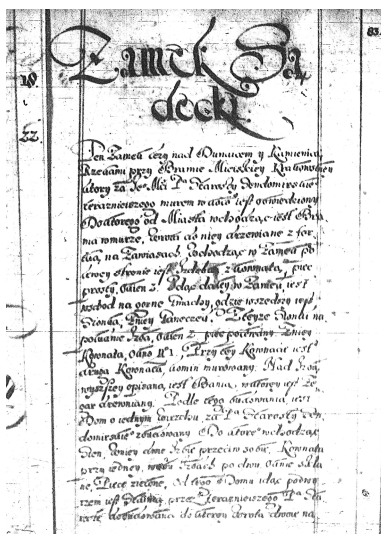 Zamek Są
decki
83
18
22
Ten Zamek leży nad Dunaicem y Kamienicą
Rzekami przy Bramie Mieyskiey Krakowskiey
ktory za Je° Mci P. Starosty Sendomirskie
teraznieyszego murem w koło iest
Do ktorego od Miasta wchodząc iest Bra
ma w murze, Wrota do niey drzewiane z for
tką, na Zawiasach, Wchodząc w Zamek po
prawey stronie iest z Komnatą, piec
prosty, okien 2. Idąc daley w Zamek, iest
wschod na gorne Gmachy, gdzie wszedszy iest
Sionka, z niey Ganeczek. Z teyże Sionki na
Izba, okien 2. piec polewany. Z niey
Komnata, okno N° 1. Przy tey Komnacie iest
druga Komnata, komin murowany. Nad Izbą
wyszszey opisaną, iest Bania, w ktorey iest Ze
gar drewniany. Podle tego budowania, iest
Dom o iednym wierzchu za P. Starosty Sen
domirskie° zbudowany. Do ktore° wchodząc
Sien, w oney dwie Izbie przeciw sobie, Komnata
przy iedney, w tych Izbach po dwu Oknie
ne, Piece zielone, od tego Domu idąc podwo
rzem iest Stainia, przez teraznieyszego P. Sta
rostę do ktorey wrota dwoie na